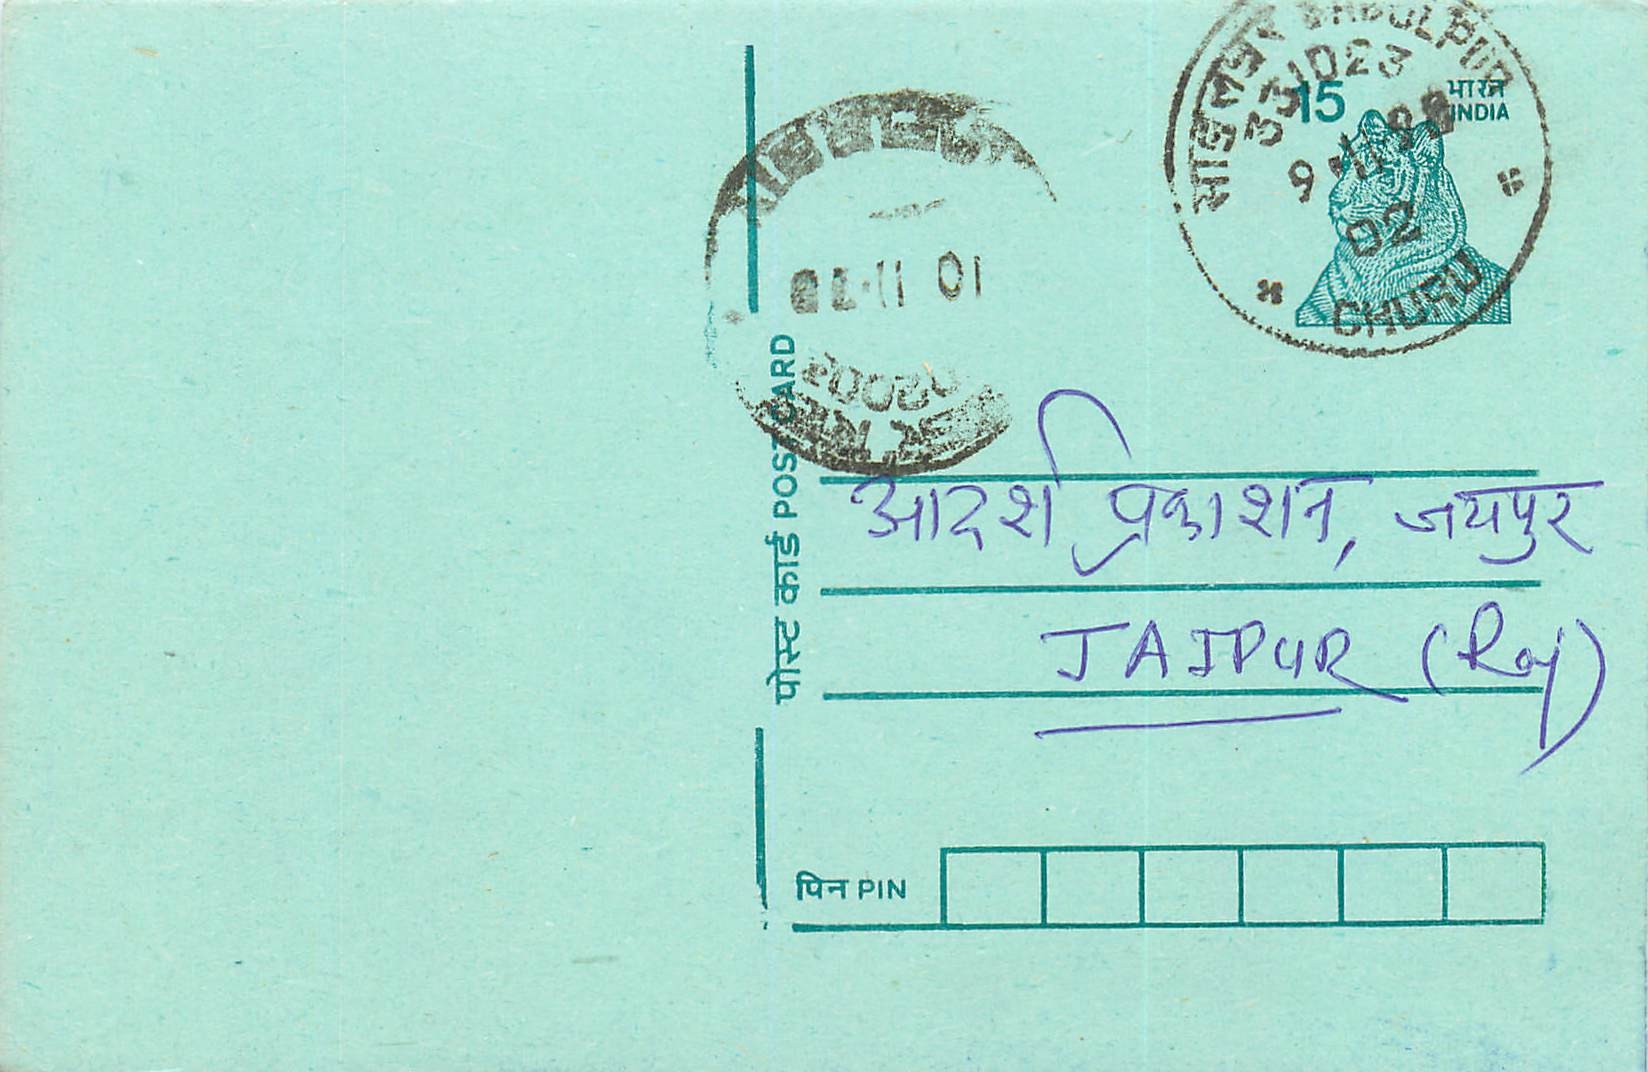 SADULPUR
331023
02
CHURU
15
भारत
INDIA
11 01
पोस्ट कार्ड POST CARD
आदर्श प्रकाशन, जयपुर
JAIPUR (Raj)
पिन PIN